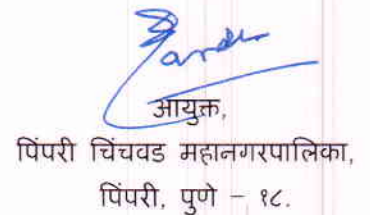 आयुक्त,
पिंपरी चिंचवड महानगरपालिका,
पिंपरी, पुणे – १८.